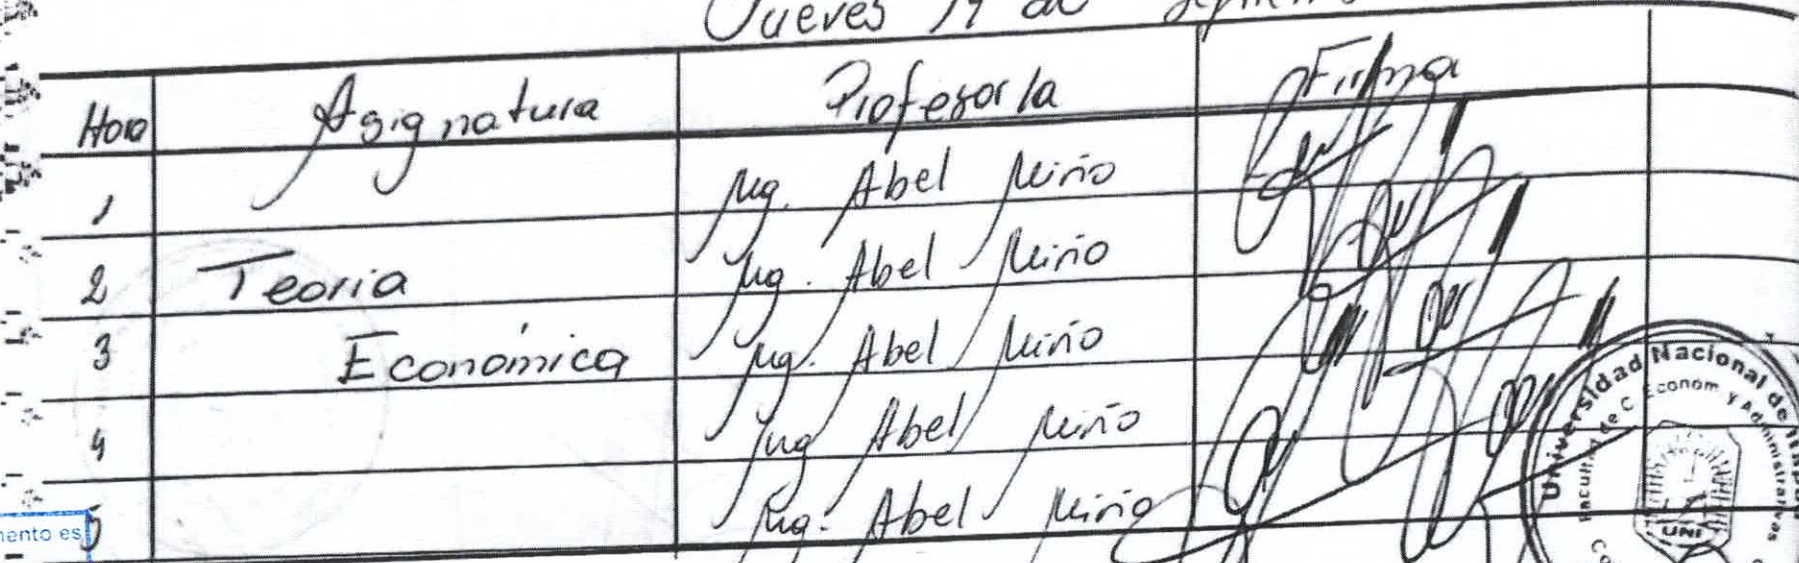 Jueves 14 de
Hora Asignatura Profesor/a Firma
1 Mg. Abel Miño
2 Teoría Mg. Abel Miño
3 Económica Mg. Abel Miño
4 Mg Abel Miño
5 Mg. Abel Miño
mento es
Universidad Nacional de Itapúa
Facultad de C Econom y Administrativas
UNI